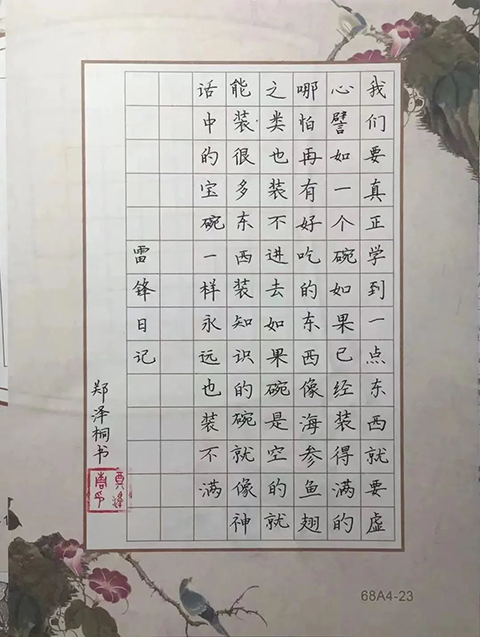 我们要真正学到一点东西就要虚
心譬如一个碗如果已经装得满的
哪怕再有好吃的东西像海参鱼翅
之类也装不进去如果碗是空的就
能装很多东西装知识的碗就像神
话中的宝碗一样永远也装不满
雷锋日记
郑泽桐书
68A4-23